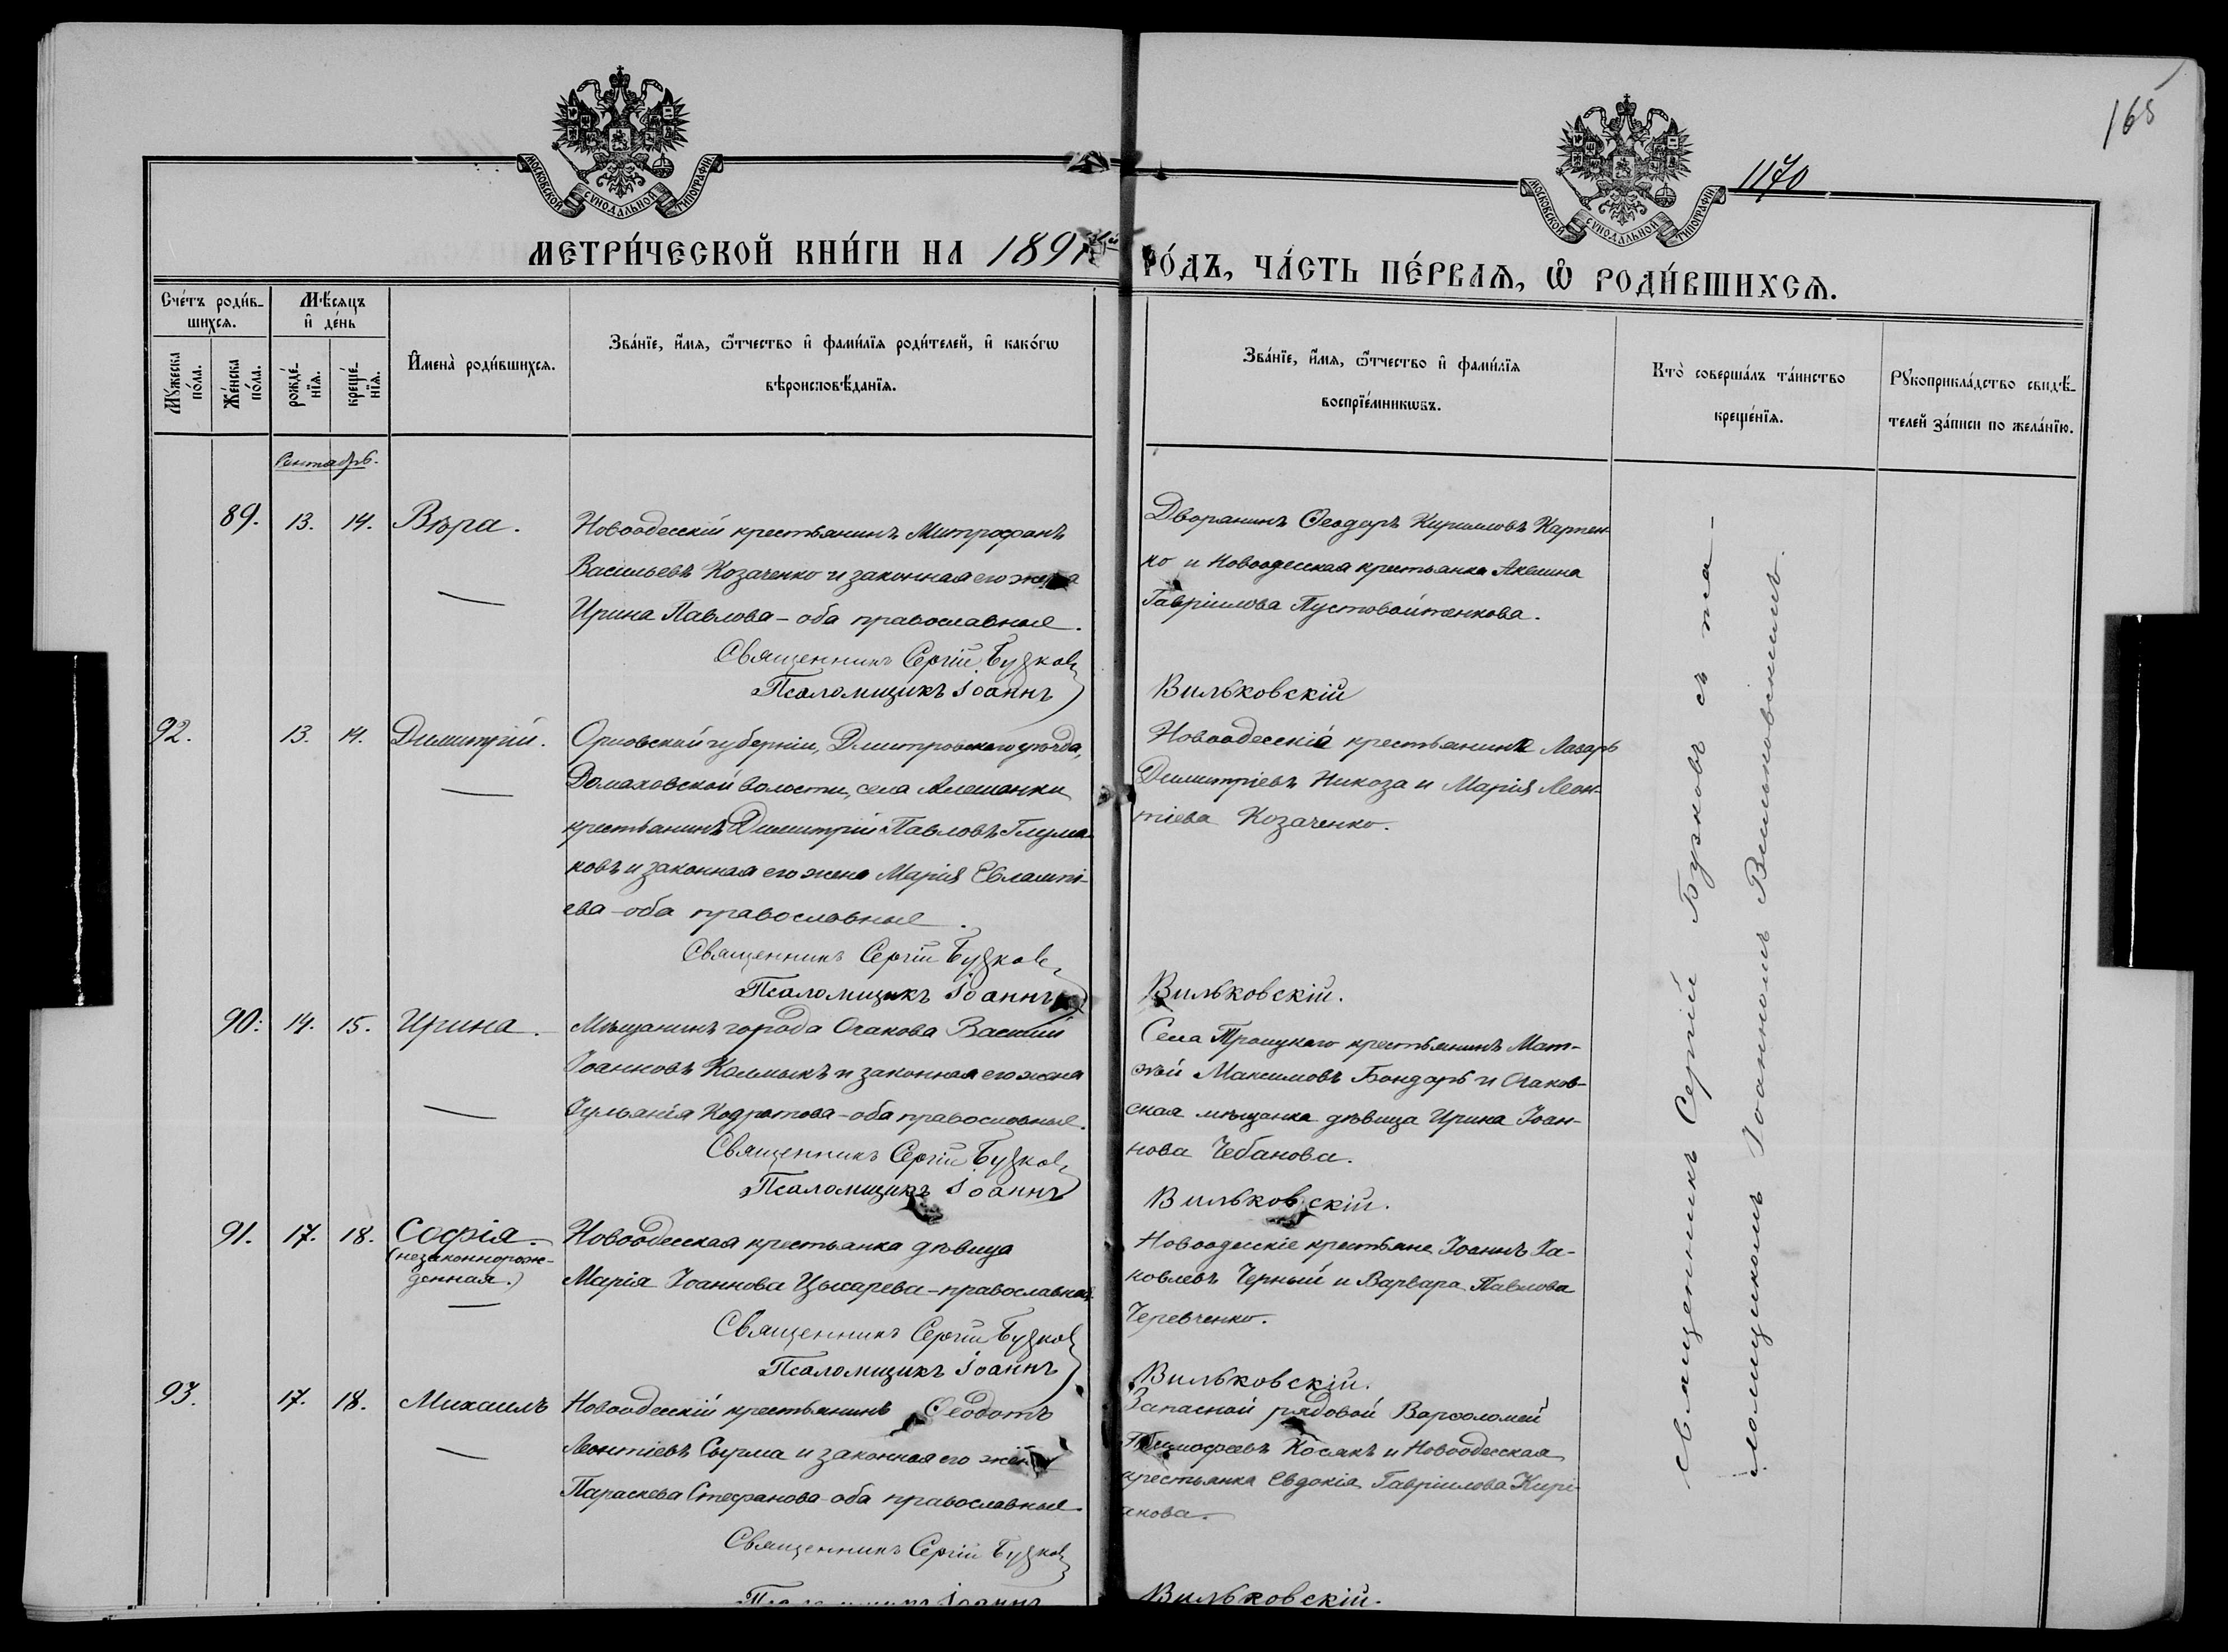 165
1170
МОСКОВСКОЙ СѴНОДАЛЬНОЙ ТИПОГРАФІИ
МОСКОВСКОЙ СѴНОДАЛЬНОЙ ТИПОГРАФІИ
МЕТРИ́ЧЕСКОЙ КНИ́ГИ НА 1891 ГО́ДЪ, ЧА́СТЬ ПЕ́РВАѦ, Ѡ РОДИ́ВШИХСѦ.
Сче́тъ роди́в-
шихсѧ.
Мѣ́сѧцъ
и҆ де́нь
Мꙋ́жеска
по́ла.
Же́нска
по́ла.
рожде́-
нїѧ.
креще́-
нїѧ.
И҆мена̀ роди́вшихсѧ.
Зва́нїе, и҆́мѧ, ѻ҆́тчество и҆ фами́лїѧ роди́телей, и҆ како́гѡ
вѣроисповѣ́данїѧ.
Зва́нїе, и҆́мѧ, ѻ҆́тчество и҆ фами́лїѧ
воспрїе́мникѡвъ.
Кто̀ соверша́лъ та́инство
креще́нїѧ.
Рꙋкоприкла́дство свидѣ́-
телей за́писи по жела́нїю.
Сентябрь.
89. 13. 14. Вѣра.
Новоодесскій крестьянинъ Митрофанъ
Васильевъ Козаченко и законная его жена
Ирина Павлова - оба православные.
Священникъ Сергій Бузковъ
Псаломщикъ Іоаннъ
Дворянинъ Ѳеодоръ Кирилловъ Карпен-
ко и Новоодесская крестьянка Акилина
Гавріилова Пустовойтенкова.
Вильковскій
92. 13. 14. Димитрій.
Орловской губерніи, Дмитровскаго уѣзда,
Домаховской волости, села Алешанки
крестьянинъ Димитрій Павловъ Глума-
ковъ и законная его жена Марія Евлампі-
ева - оба православные.
Священникъ Сергій Бузковъ
Псаломщикъ Іоаннъ
Новоодесскіе крестьяне Лазарь
Димитріевъ Никоза и Марія Леон-
тіева Козаченко.
Вильковскій.
90. 14. 15. Ирина.
Мѣщанинъ города Очакова Василій
Іоанновъ Калмыкъ и законная его жена
Іуліанія Кодратова - оба православные.
Священникъ Сергій Бузковъ
Псаломщикъ Іоаннъ
Села Троицкаго крестьянинъ Мат-
ѳій Максимовъ Бондарь и Очаков-
ская мѣщанка дѣвица Ирина Іоан-
нова Чебанова.
Вильковскій.
91. 17. 18. Софія.
(незаконнорож-
денная.)
Новоодесская крестьянка дѣвица
Марія Іоаннова Цысарева - православная.
Священникъ Сергій Бузковъ
Псаломщикъ Іоаннъ
Новоодесскіе крестьяне Іоаннъ Іа-
ковлевъ Черный и Варвара Павлова
Черевченко.
Вильковскій.
93. 17. 18. Михаилъ
Новоодесскій крестьянинъ Ѳеодотъ
Леонтіевъ Сырма и законная его жена
Параскева Стефанова - оба православные.
Священникъ Сергій Бузковъ
Псаломщикъ Іоаннъ
Запасной рядовой Варѳоломей
Тимофеевъ Косякъ и Новоодесская
крестьянка Евдокія Гавріилова Кирі-
янова.
Вильковскій.
Священникъ Сергій Бузковъ съ пса-
ломщикомъ Іоанномъ Вильковскимъ.